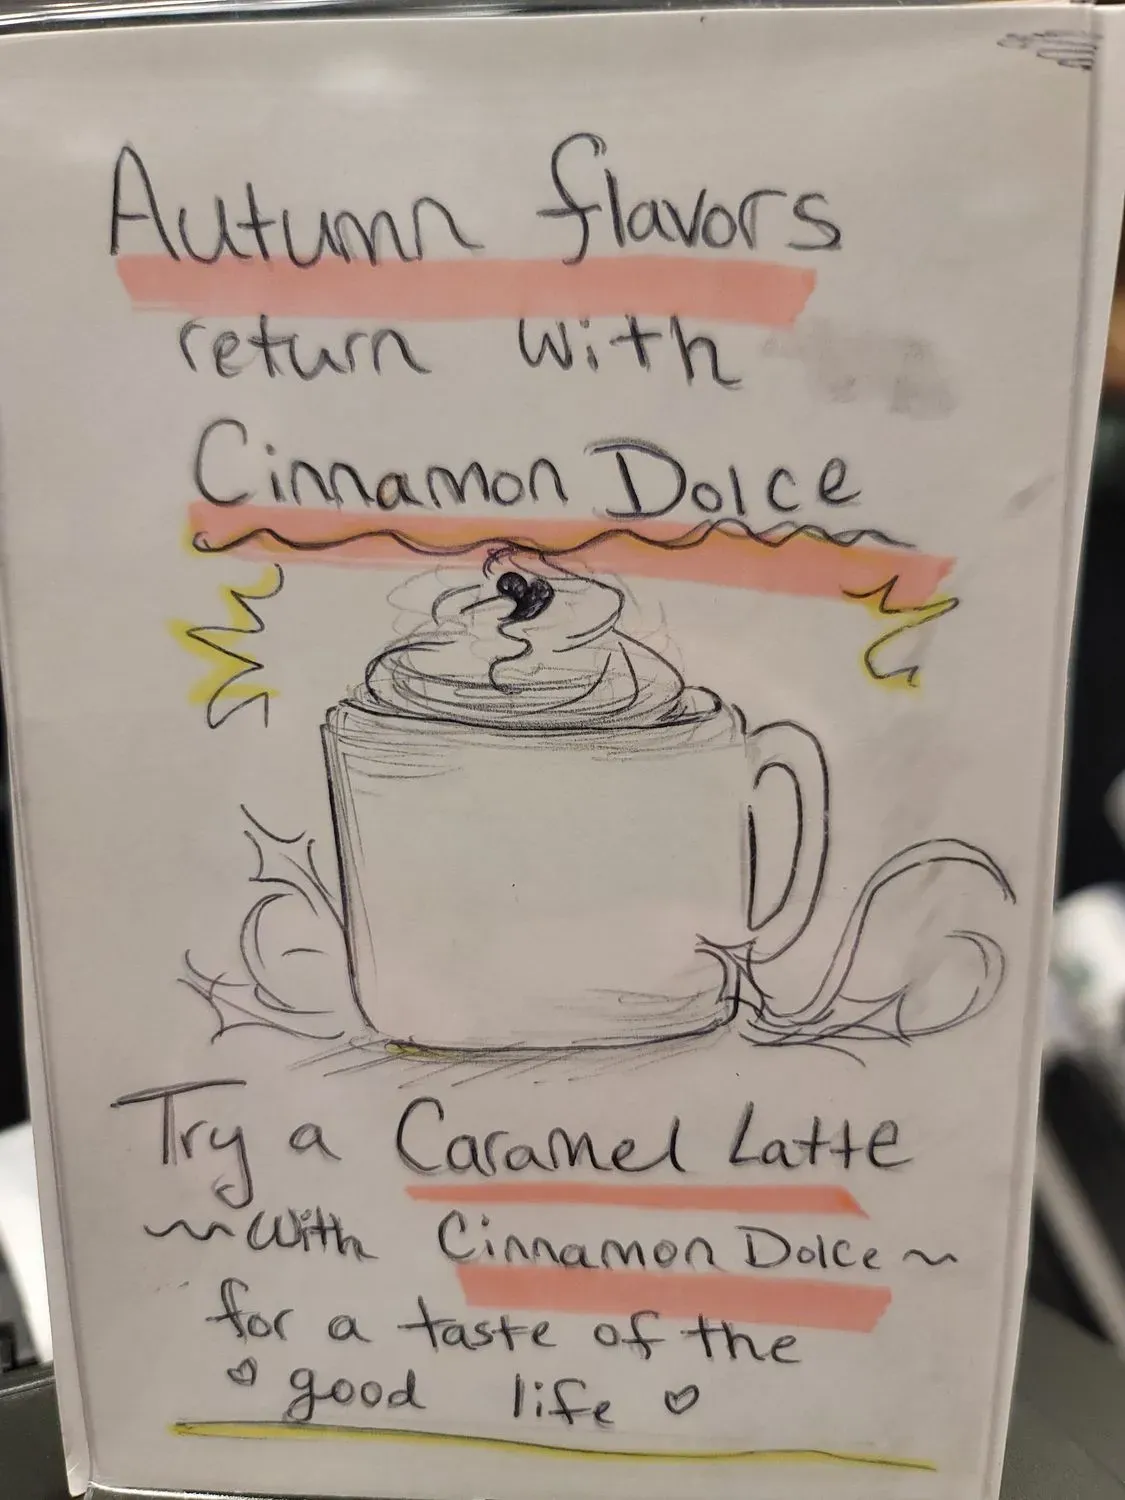 Autumn flavors
return with
Cinnamon Dolce
Try a Caramel Latte
~with Cinnamon Dolce~
for a taste of the
♡ good life ♡